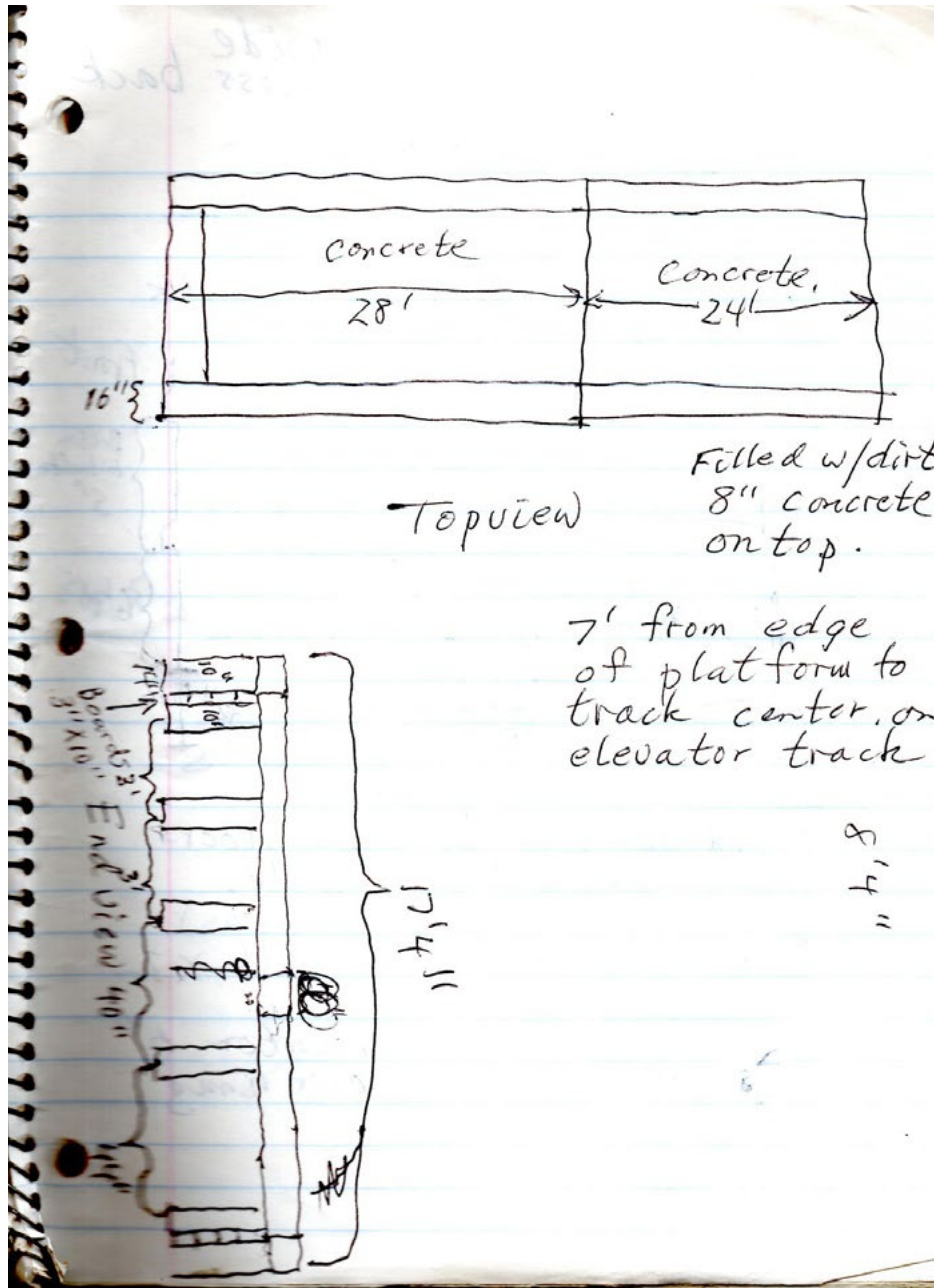 Concrete
28'
Concrete.
24'
16"
Topview
Filled w/dirt
8" concrete
on top.
7' from edge
of platform to
track center. on
elevator track
10"
10"
Boards
3" x 10"
3'
3'
End view 40"
8"
17'4"
8'4"